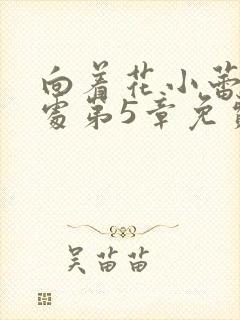 向着花小蕾
处第5章免
吴苗苗